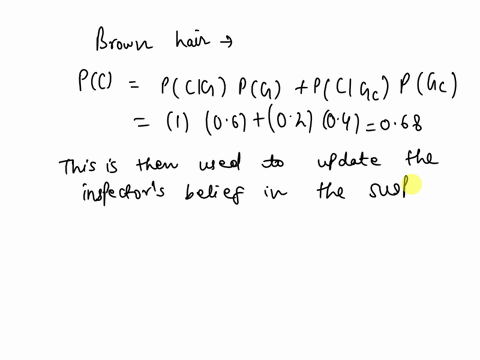 Brown hair →
P(C) = P(C|G) P(G) + P(C|Gc) P(Gc)
= (1) (0.6) + (0.2) (0.4) = 0.68
This is then used to update the
inspector's belief in the sus